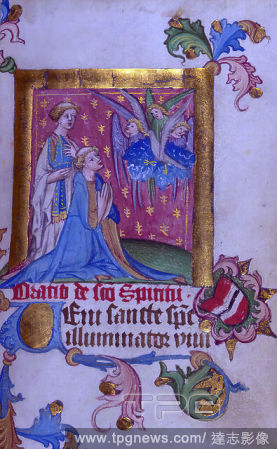 Oratio de sco Spiritu.
Eni sancte spe
illuminator
TPG
www.tpgnews.com/ 達志影像